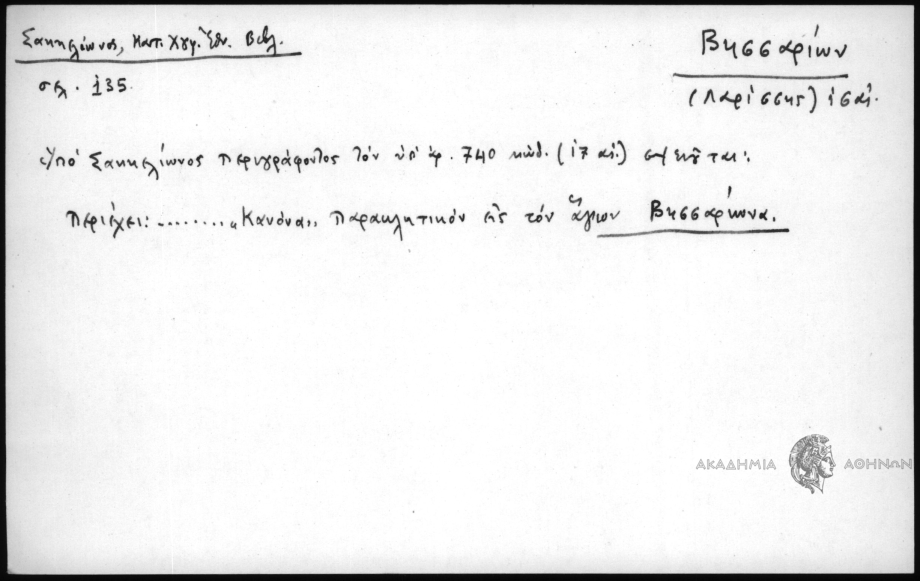 Σακκελίωνος, Κατ. Χγφ. Ἐθν. Βιβλ.
σελ. 135.
Βησσαρίων
(Λαρίσσης)
Ὑπό Σακκελίωνος περιγράφοντος τόν ὑπ' ἀρ. 740 κώδ. (17 αἰ.)
Περιέχει: ........ „Κανόνα„ Παρακλητικόν εἰς τόν ἅγιον Βησσαρίωνα.
ΑΚΑΔΗΜΙΑ ΑΘΗΝΩΝ